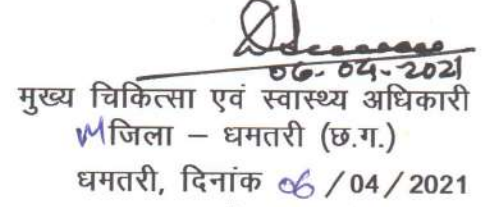 06-04-2021
मुख्य चिकित्सा एवं स्वास्थ्य अधिकारी
जिला – धमतरी (छ.ग.)
धमतरी, दिनांक 06 / 04 / 2021